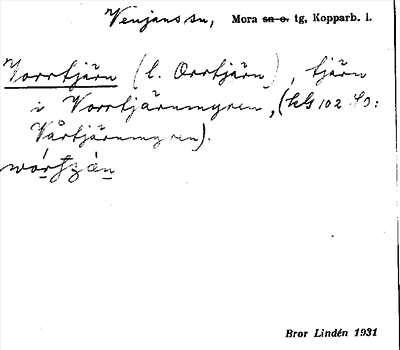 Venjans sn, Mora sn o. tg, Kopparb. l.
Vorrtjärn (l. Orrtjärn), tjärn
i Vorrtjärnmyren, (kG 102 SO:
Vårtjärnmyren).
Bror Lindén 1931